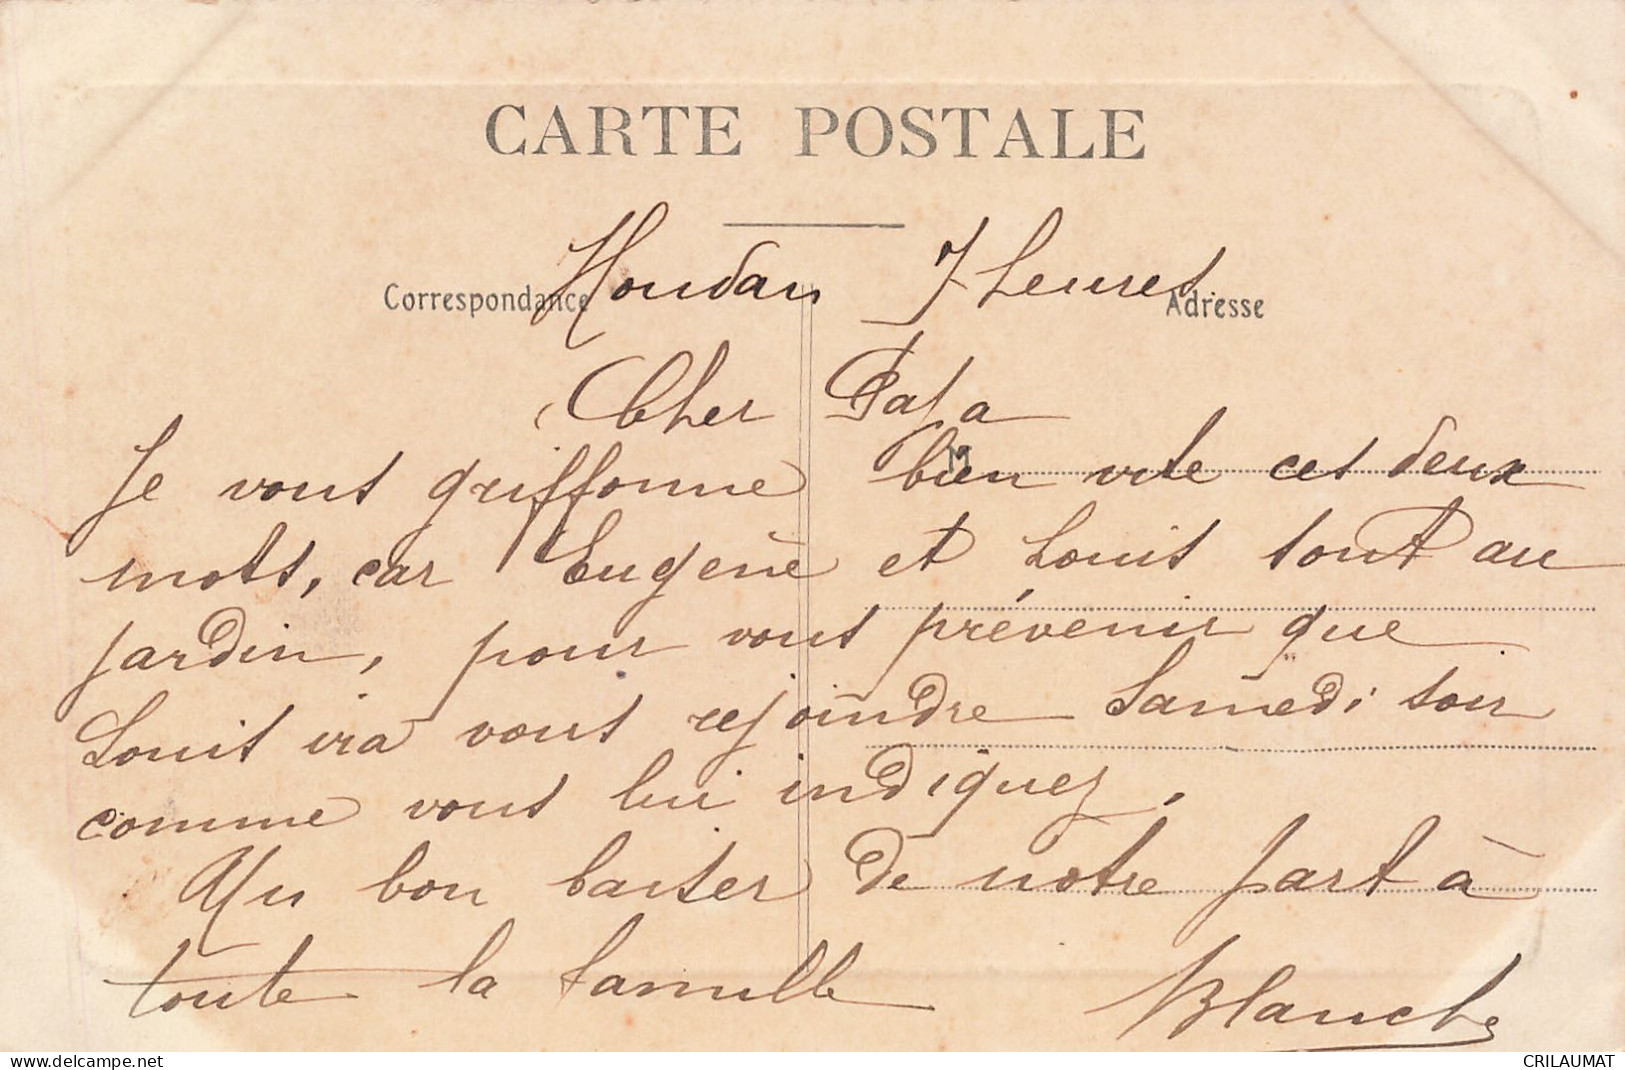 CARTE POSTALE
Correspondance
Adresse
M
Houdan 7 heures
Cher Papa
Je vous griffonne bien vite ces deux
mots, car Eugène et Louis sont au
jardin, pour vous prévenir que
Louis ira vous rejoindre Samedi soir
comme vous lui indiquez.
Un bon baiser de notre part à
toute la famille
Blanche
www.delcampe.net
CRILAUMAT